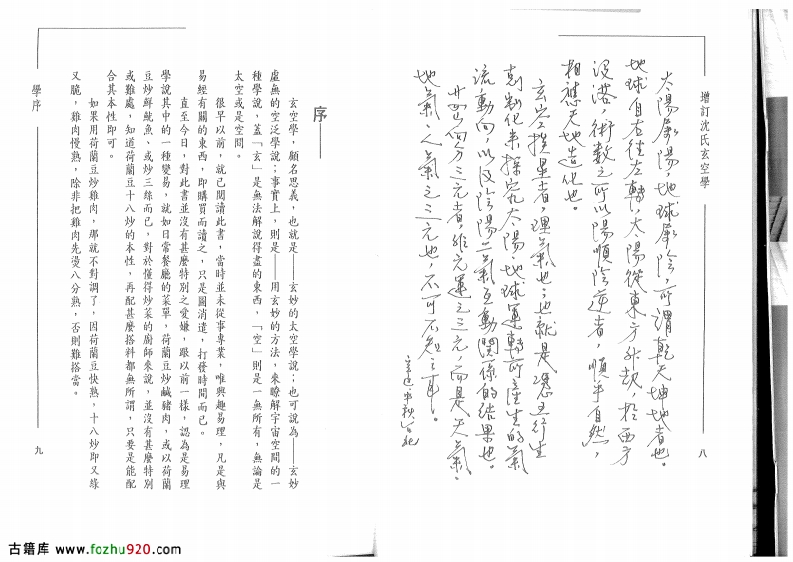 增訂沈氏玄空學
八
太陽屬陽，地球屬陰，可謂乾天坤地者也。
地球自右往左轉，太陽從東方升起，於西方
沒落，術數之所以陽順陰逆者，順乎自然，
相應天地造化也。
玄空撰星者，理氣也；也就是憑五行生
剋制化來探究太陽、地球運轉所產生的氣
流動向，以及陰陽二氣互動關係的結果也。
廿四山四分三元者，非元運之三元，而是天氣、
地氣、人氣之三元也，不可不知之耳。
序
玄空學，顧名思義，也就是——玄妙的太空學說；也可說為——玄妙
虛無的空泛學說；事實上，則是——用玄妙的方法，來瞭解宇宙空間的一
種學說，蓋「玄」是無法解說得盡的東西，「空」則是一無所有，無論是
太空或是空間。
很早以前，就已閱讀此書，當時並未從事專業，唯興趣易理，凡是與
易經有關的東西，即購買而讀之，只是圖消遣，打發時間而已。
直至今日，對此書並沒有甚麼特別之愛嫌，跟以前一樣，認為是易理
學說其中的一種變易，就如日常餐廳的菜單，荷蘭豆炒鹹豬肉，或以荷蘭
豆炒鮮魷魚、或炒三絲而已。對於懂得炒菜的廚師來說，並沒有甚麼特別
或難處，知道荷蘭豆十八炒的本性，再配甚麼搭料都無所謂，只要是能配
合其本性即可。
如果用荷蘭豆炒雞肉，那就不對調了，因荷蘭豆快熟，十八炒即又綠
又脆，雞肉慢熟，除非把雞肉先燙八分熟，否則難搭當。
學序
九
古籍库 www.fozhu920.com